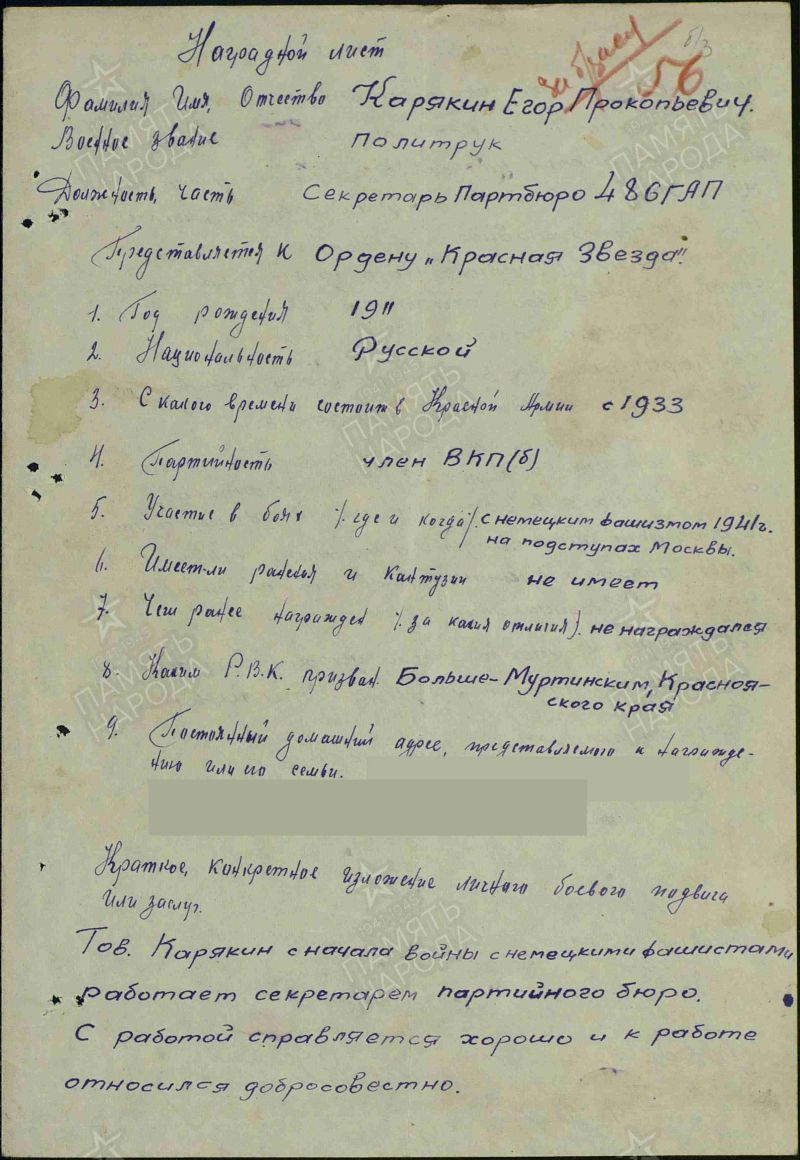 Наградной лист
56
б/з
Фамилия Имя, Отчество Карякин Егор Прокопьевич.
Военное звание Политрук
Должность, часть Секретарь Партбюро 486 ГАП
Представляется к Ордену „Красная Звезда".
1. Год рождения 1911
2. Национальность Русской
3. С какого времени состоит в Красной Армии с 1933
4. Партийность член ВКП(б)
5. Участие в боях /. где и когда/. с немецким фашизмом 1941г.
на подступах Москвы.
6. Имеет-ли ранения и контузии не имеет
7. Чем ранее награжден /. за какия отличия/. не награждался
8. Каким Р.В.К. призван Больше-Муртинским, Красноя-
ского края
9. Постоянный домашний адрес, представляемого к награжде-
нию или его семьи.
Краткое, конкретное изложение личного боевого подвига
или заслуг.
Тов. Карякин с начала войны с немецкими фашистами
работает секретарем партийного бюро.
С работой справляется хорошо и к работе
относился добросовестно.
ПАМЯТЬ
НАРОДА